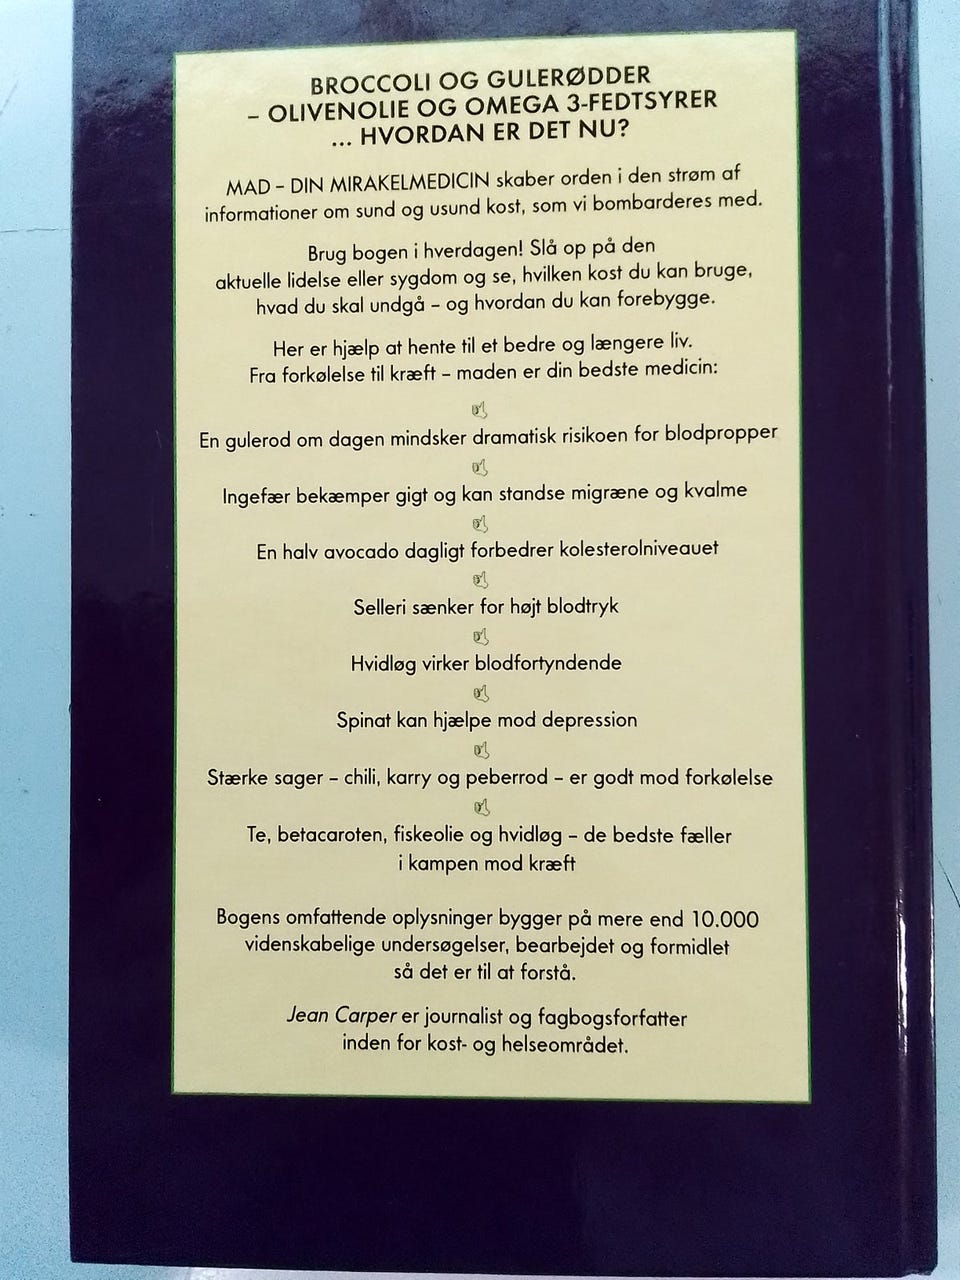 BROCCOLI OG GULERØDDER
– OLIVENOLIE OG OMEGA 3-FEDTSYRER
... HVORDAN ER DET NU?
MAD – DIN MIRAKELMEDICIN skaber orden i den strøm af
informationer om sund og usund kost, som vi bombarderes med.
Brug bogen i hverdagen! Slå op på den
aktuelle lidelse eller sygdom og se, hvilken kost du kan bruge,
hvad du skal undgå – og hvordan du kan forebygge.
Her er hjælp at hente til et bedre og længere liv.
Fra forkølelse til kræft – maden er din bedste medicin:
En gulerod om dagen mindsker dramatisk risikoen for blodpropper
Ingefær bekæmper gigt og kan standse migræne og kvalme
En halv avocado dagligt forbedrer kolesterolniveauet
Selleri sænker for højt blodtryk
Hvidløg virker blodfortyndende
Spinat kan hjælpe mod depression
Stærke sager – chili, karry og peberrod – er godt mod forkølelse
Te, betacaroten, fiskeolie og hvidløg – de bedste fæller
i kampen mod kræft
Bogens omfattende oplysninger bygger på mere end 10.000
videnskabelige undersøgelser, bearbejdet og formidlet
så det er til at forstå.
Jean Carper er journalist og fagbogsforfatter
inden for kost- og helseområdet.